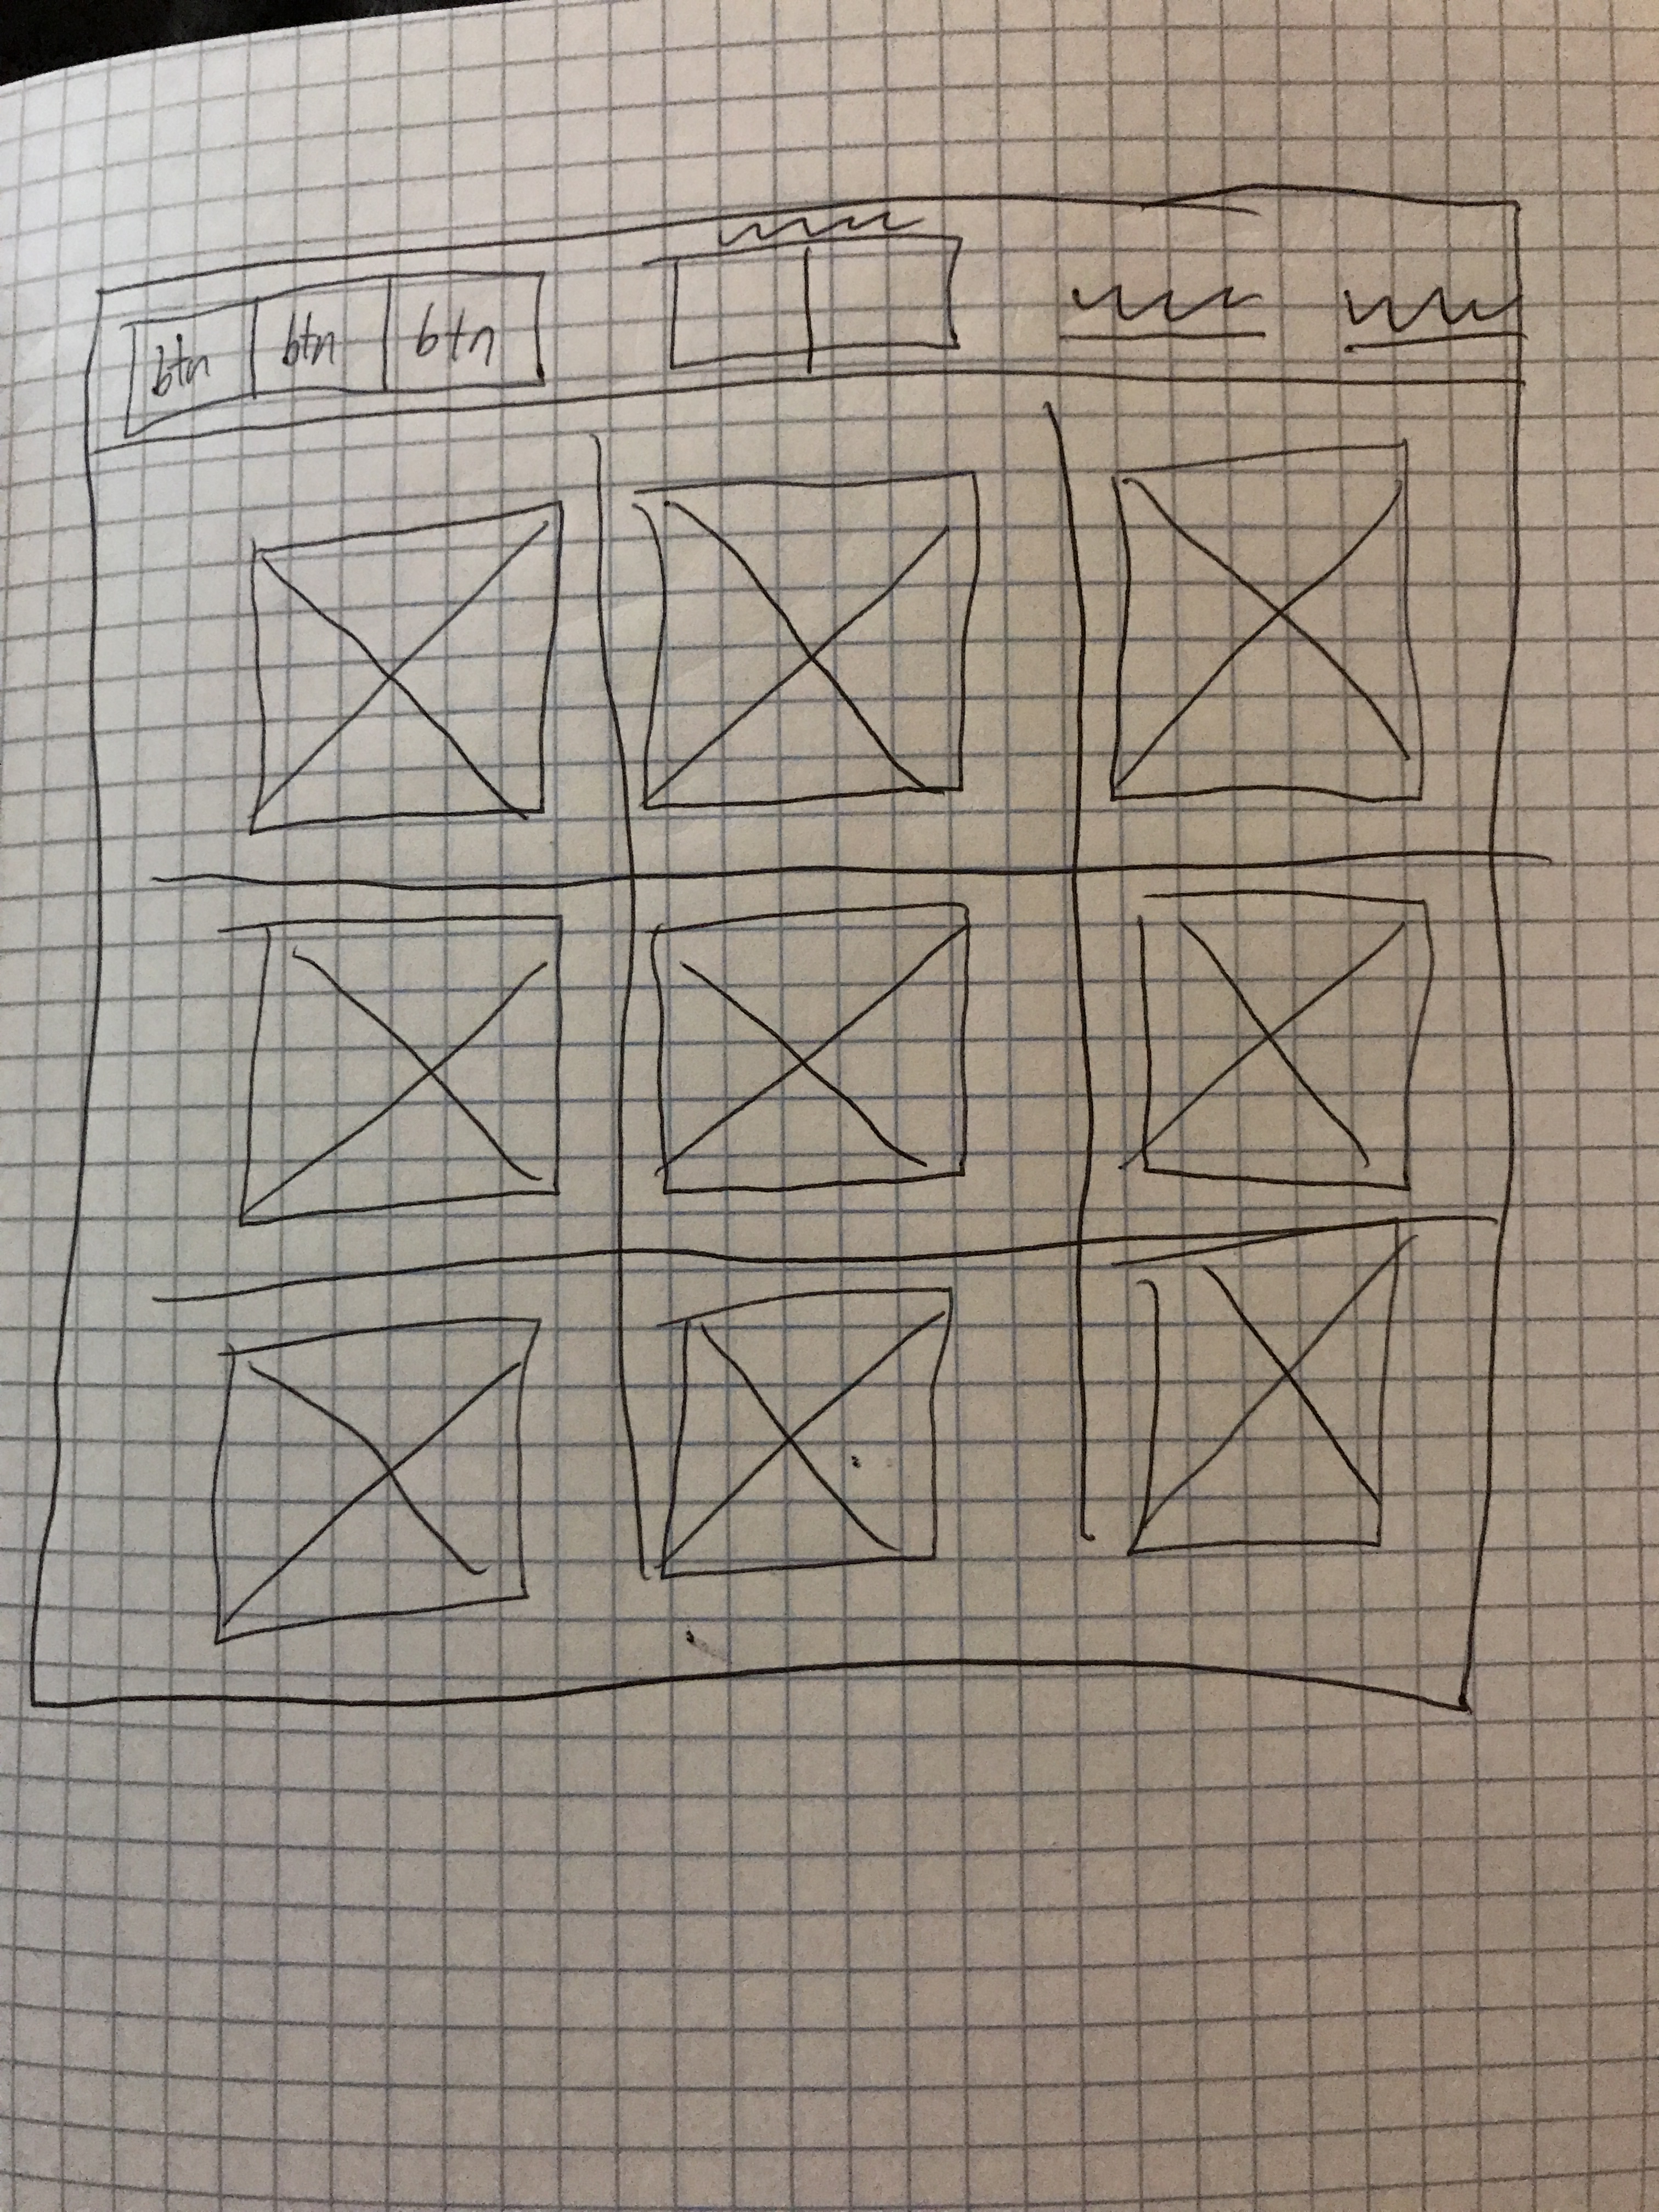 btn btn btn